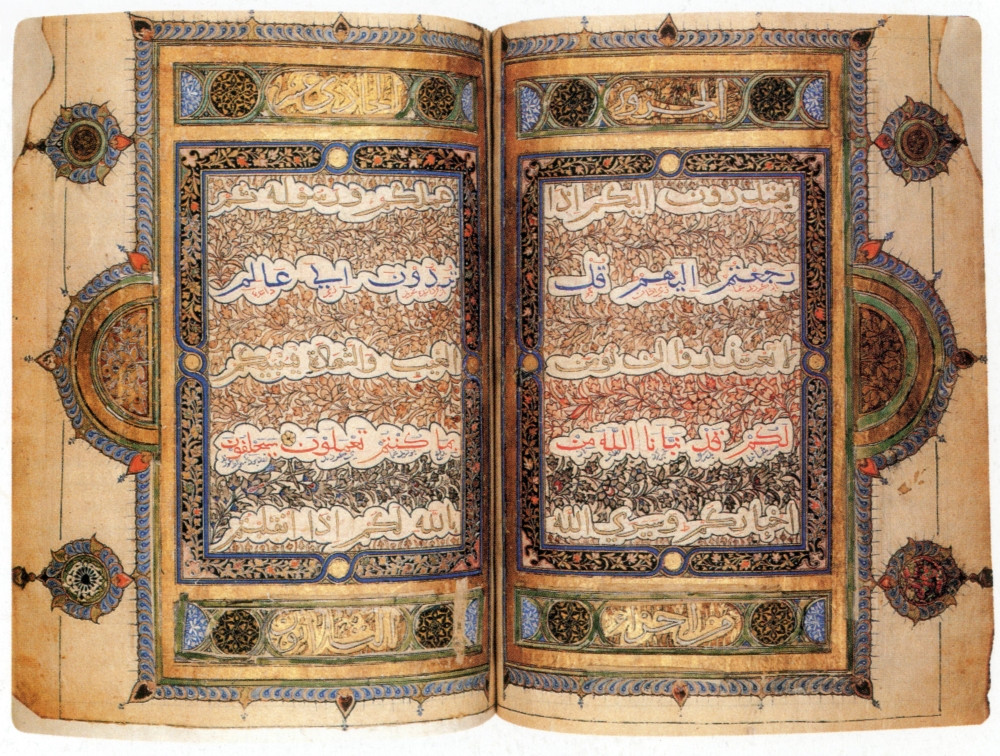 الجزو
يعتذرون اليكم اذا
رجعتم اليهم قل
لا تعتذروا لن نومن
لكم قد نبانا الله من
اخباركم وسيرى الله
من اجزاء
الحادى عشر
عملكم ورسوله ثم
تردون الى عالم
الغيب والشهادة فينبئكم
بما كنتم تعملون سيحلفون
بالله لكم اذا انقلبتم